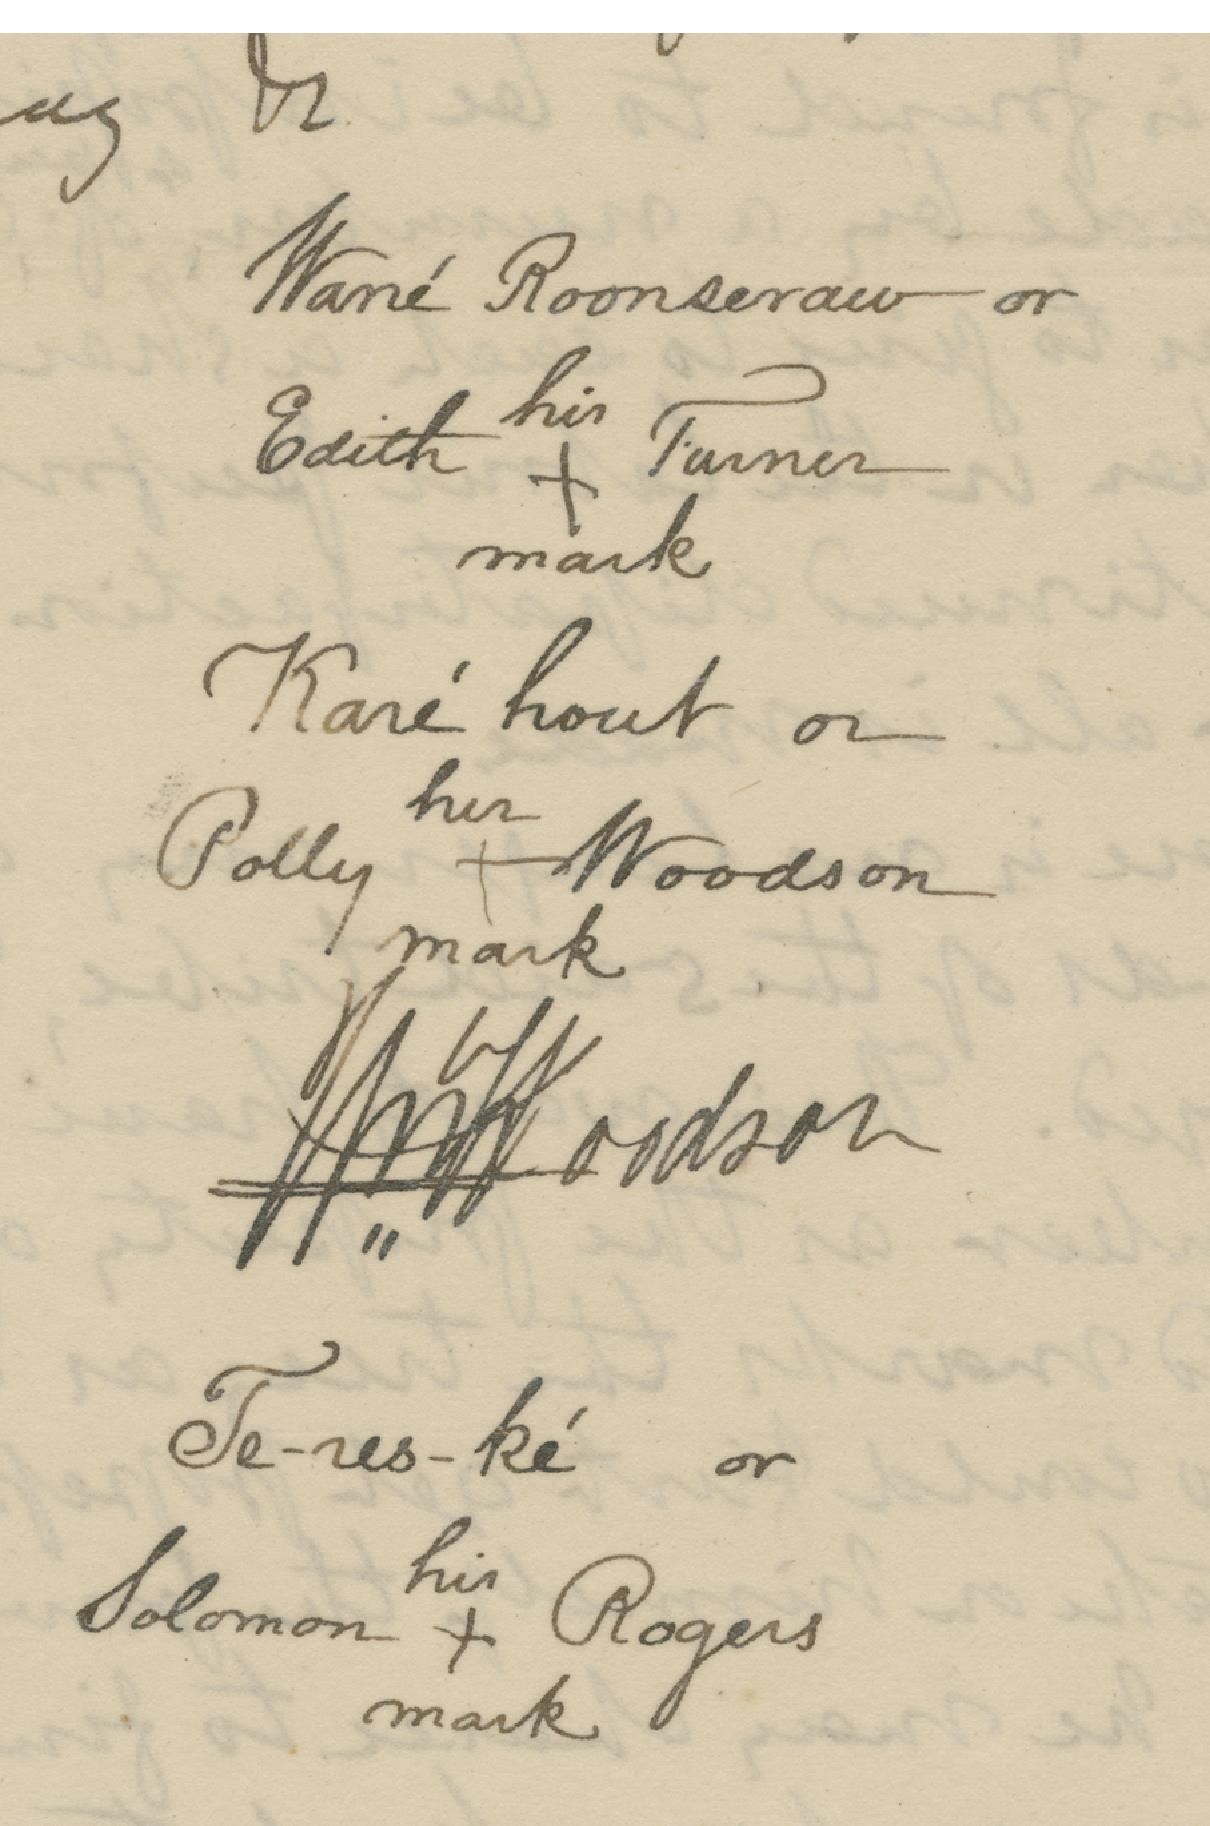 &c
Wané Roonseraw or
his
Edith + Turner
mark
Karé hout or
her
Polly + Woodson
mark
Wm G Woodson
"
Te-res-ké or
his
Solomon + Rogers
mark